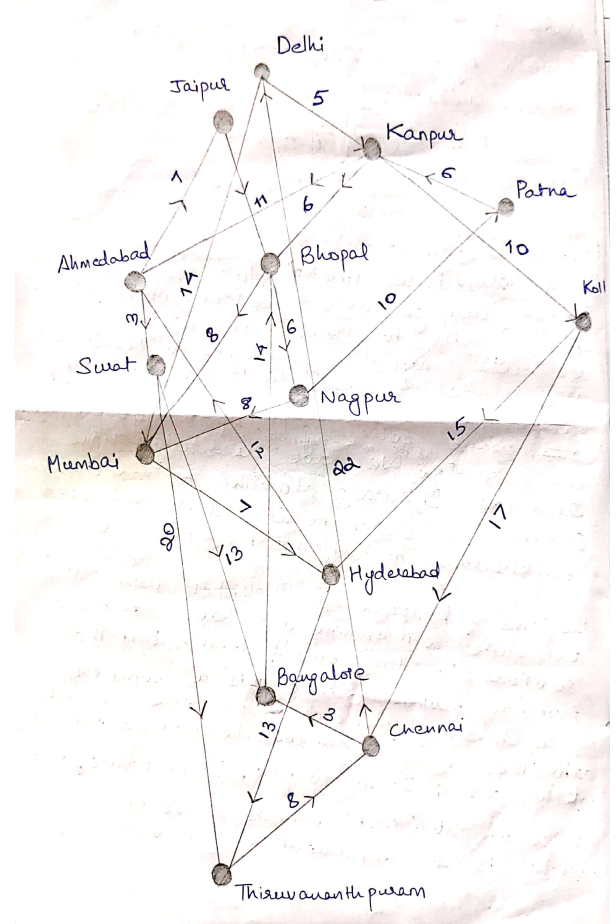 Delhi
Jaipur
5
Kanpur
6
Patna
1
11
6
10
Ahmedabad
Bhopal
14
Koll
3
8
14
6
10
Surat
Nagpur
8
15
Mumbai
12
22
7
20
13
17
Hyderabad
Bangalore
3
13
Chennai
8
Thiruvananthpuram